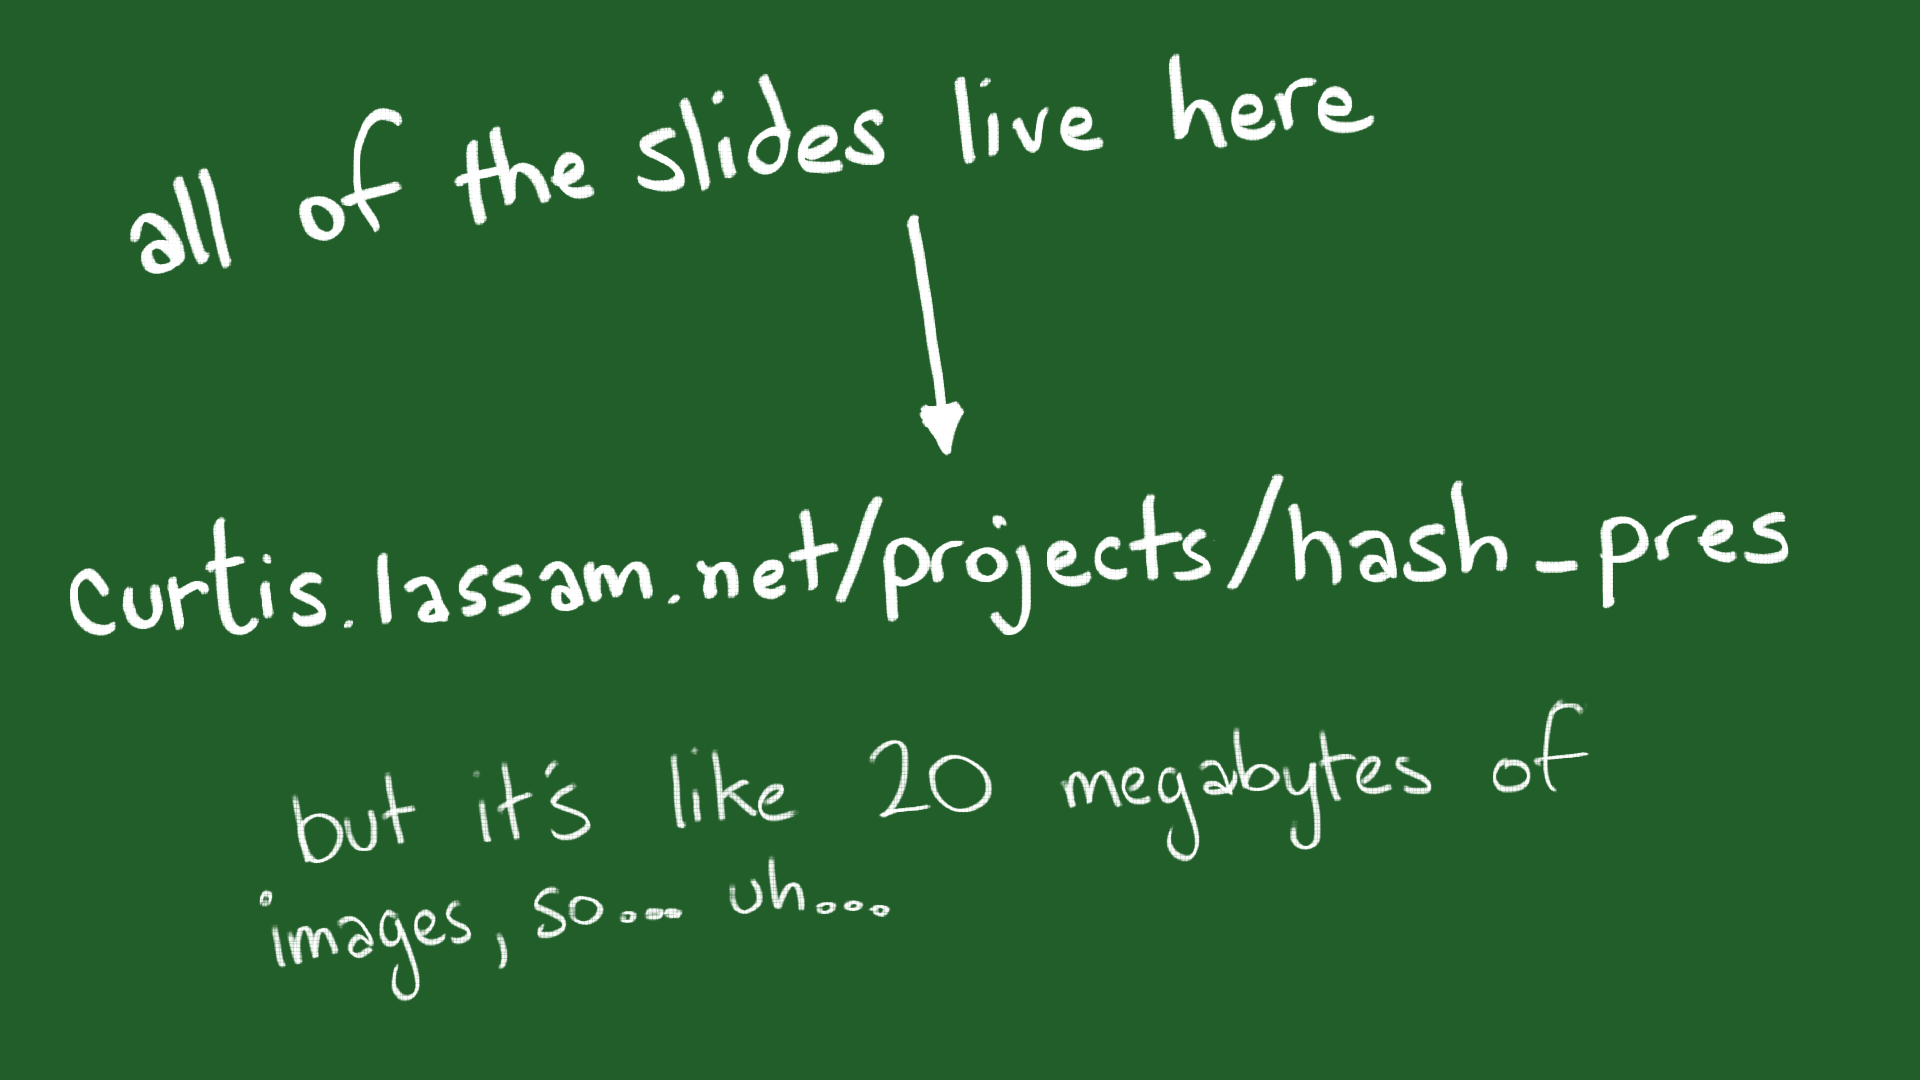 all of the slides live here
curtis.lassam.net/projects/hash_pres
but it's like 20 megabytes of
images, so... uh...